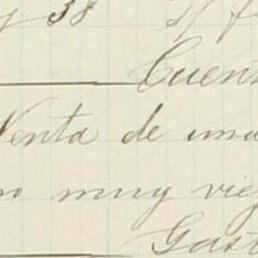 y 38 S/ f
Cuen
Venta de una
o muy vie
Gast